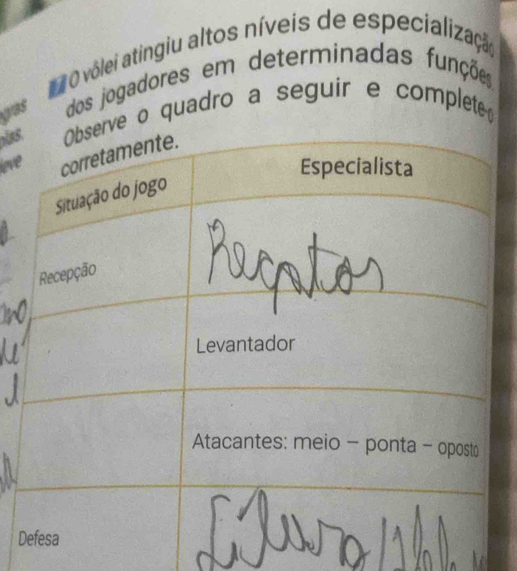 O vôlei atingiu altos níveis de especialização
dos jogadores em determinadas funções.
Observe o quadro a seguir e complete-o
corretamente.
Situação do jogo Especialista
Recepção
Levantador
Atacantes: meio – ponta – oposto
Defesa